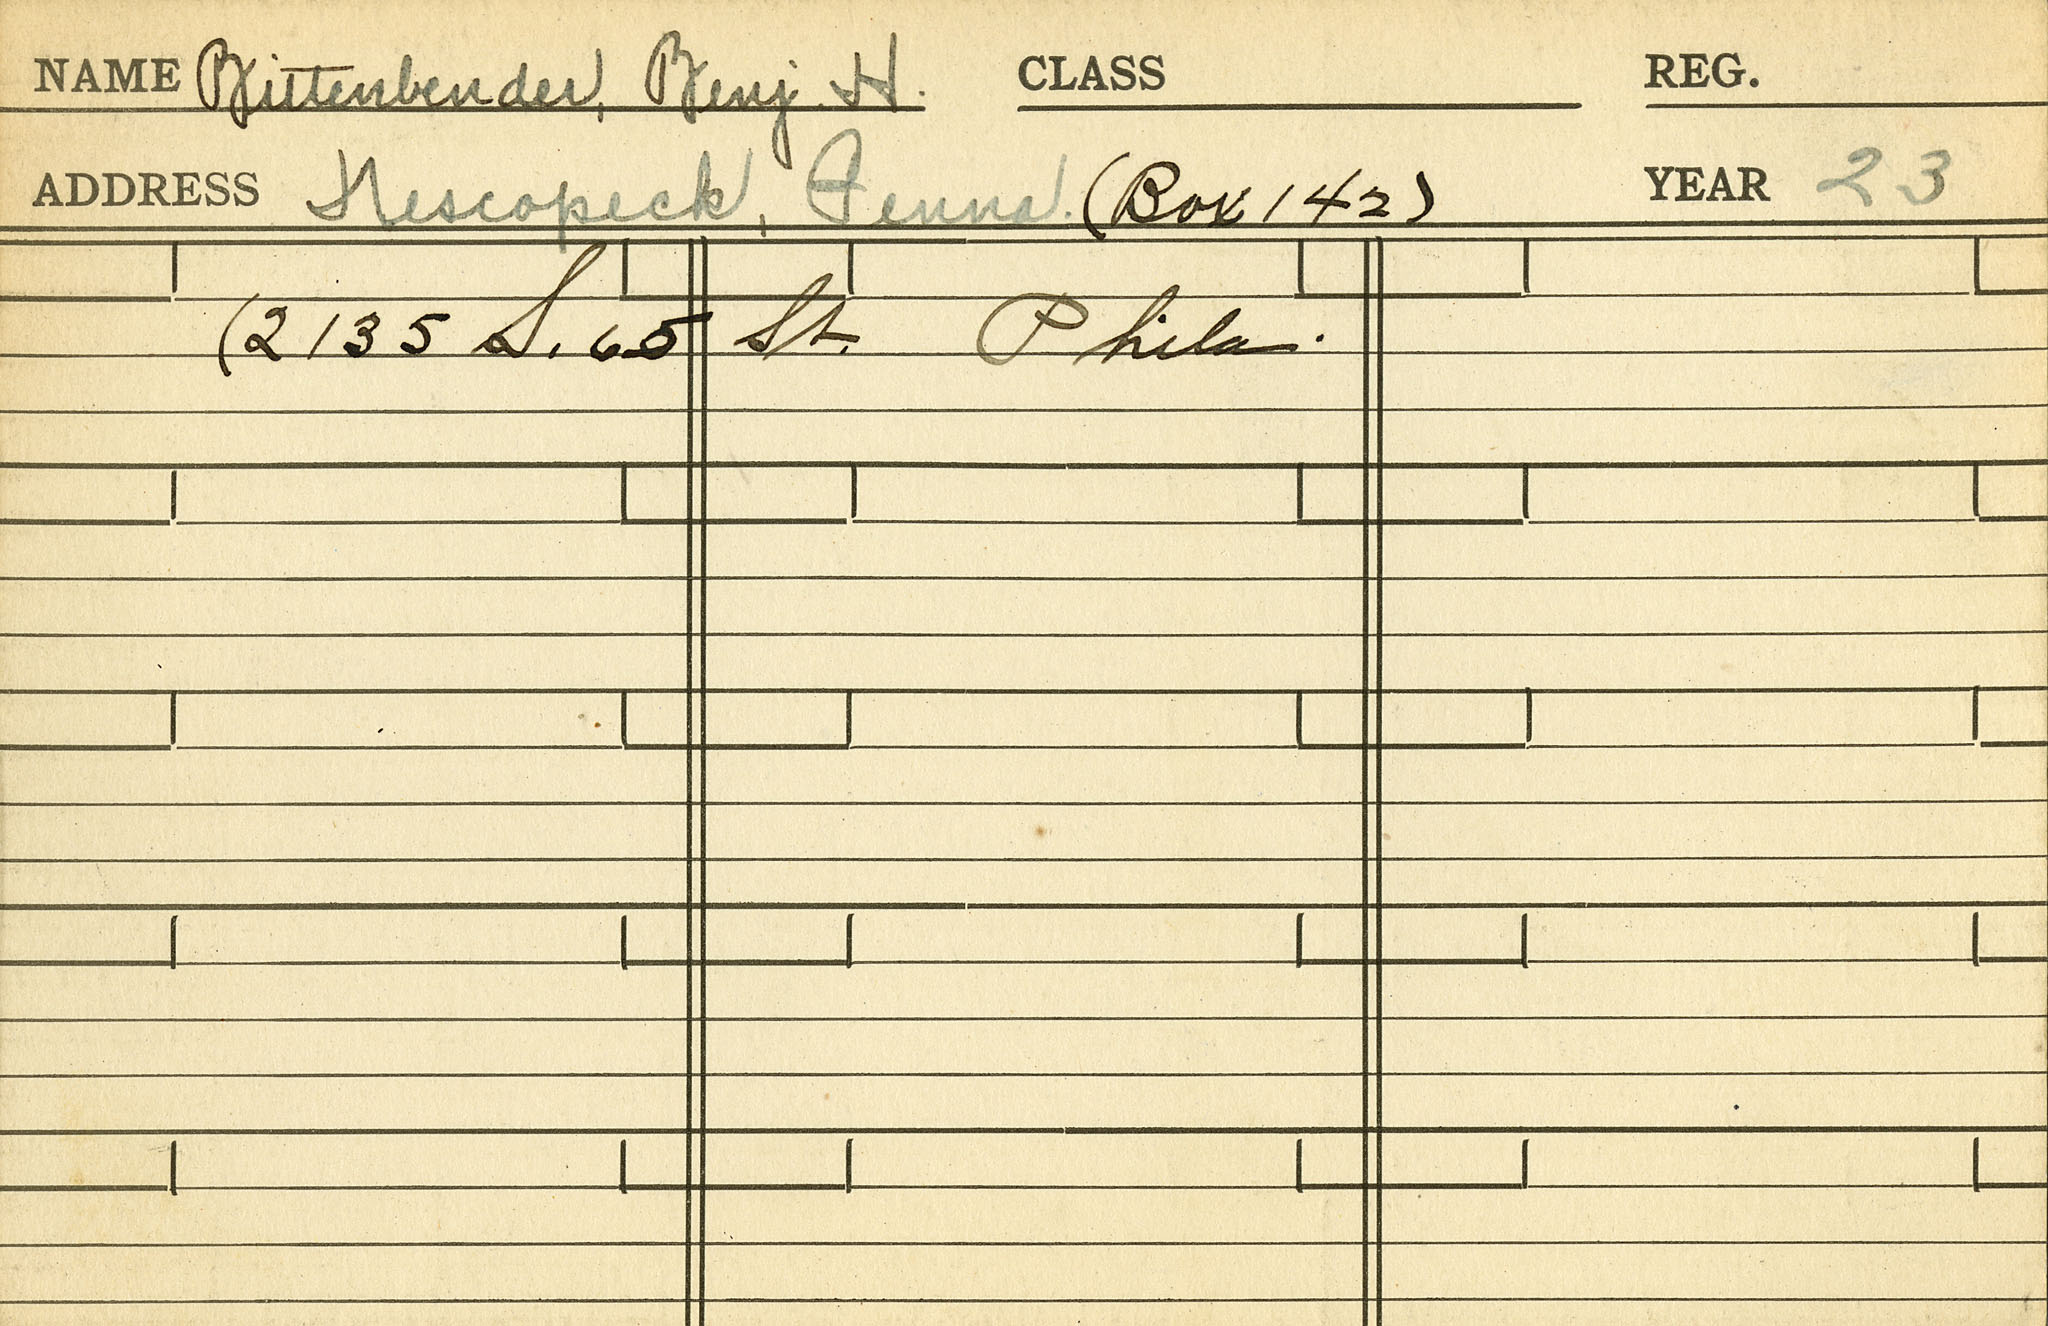 NAME Bittenbender, Benj. H. CLASS REG.
ADDRESS Nescopeck, Penna. (Box 142) YEAR 23
(2135 S. 65 St. Phila.